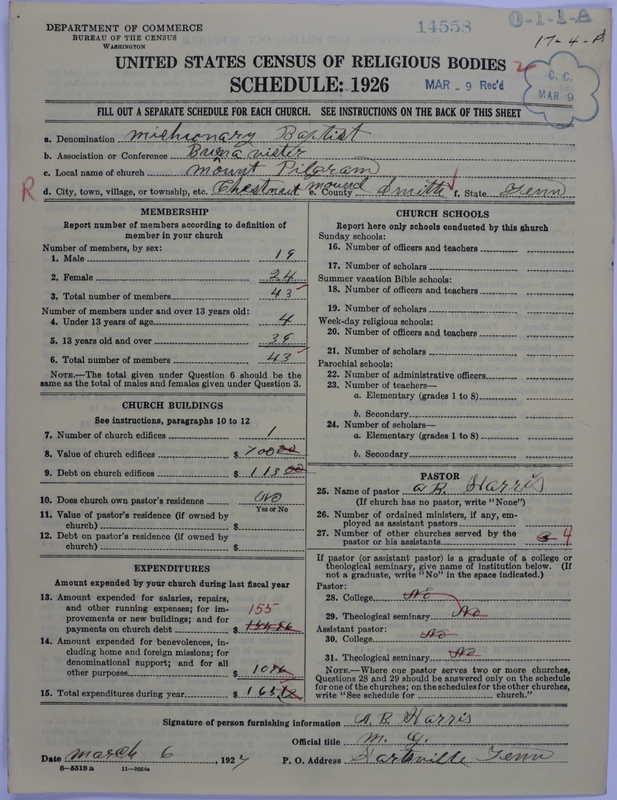 DEPARTMENT OF COMMERCE
BUREAU OF THE CENSUS
WASHINGTON
14558
0-1-1-A
17-4-A
UNITED STATES CENSUS OF RELIGIOUS BODIES
SCHEDULE: 1926
MAR - 9 Rec'd
C. C.
MAR 9
FILL OUT A SEPARATE SCHEDULE FOR EACH CHURCH. SEE INSTRUCTIONS ON THE BACK OF THIS SHEET
a. Denomination Missionary Baptist
b. Association or Conference
c. Local name of church Mount Pilgram
R d. City, town, village, or township, etc. Chestnut Mound e. County Smith f. State Tenn
MEMBERSHIP
Report number of members according to definition of
member in your church
Number of members, by sex:
1. Male 19
2. Female 24
3. Total number of members 43
Number of members under and over 13 years old:
4. Under 13 years of age 4
5. 13 years old and over 39
6. Total number of members 43
NOTE.—The total given under Question 6 should be
same as the total of males and females given under Question 3.
CHURCH BUILDINGS
See instructions, paragraphs 10 to 12
7. Number of church edifices 1
8. Value of church edifices $ 70000
9. Debt on church edifices $ 11300
10. Does church own pastor's residence No
Yes or No
11. Value of pastor's residence (if owned by
church) $
12. Debt on pastor's residence (if owned by
church) $
EXPENDITURES
Amount expended by your church during last fiscal year
13. Amount expended for salaries, repairs,
and other running expenses; for im- 155
provements or new buildings; and for
payments on church debt $
14. Amount expended for benevolences, in-
cluding home and foreign missions; for
denominational support; and for all
other purposes $
15. Total expenditures during year $
CHURCH SCHOOLS
Report here only schools conducted by this church
Sunday schools:
16. Number of officers and teachers
17. Number of scholars
Summer vacation Bible schools:
18. Number of officers and teachers
19. Number of scholars
Week-day religious schools:
20. Number of officers and teachers
21. Number of scholars
Parochial schools:
22. Number of administrative officers
23. Number of teachers—
a. Elementary (grades 1 to 8)
b. Secondary
24. Number of scholars—
a. Elementary (grades 1 to 8)
b. Secondary
PASTOR
25. Name of pastor A B. Harris
(If church has no pastor, write "None")
26. Number of ordained ministers, if any, em-
ployed as assistant pastors
27. Number of other churches served by the
pastor or his assistants 3 4
If pastor (or assistant pastor) is a graduate of a college or
theological seminary, give name of institution below. (If
not a graduate, write "No" in the space indicated.)
Pastor:
28. College No
29. Theological seminary No
Assistant pastor:
30. College No
31. Theological seminary No
NOTE.—Where one pastor serves two or more churches,
Questions 28 and 29 should be answered only on the schedule
for one of the churches; on the schedules for the other churches,
write "See schedule for church."
Signature of person furnishing information A. B Harris
Official title M. G.
Date March 6, 1927 P. O. Address Hartsville Tenn
8-5518 a 11-9054a